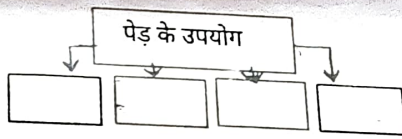 पेड़ के उपयोग